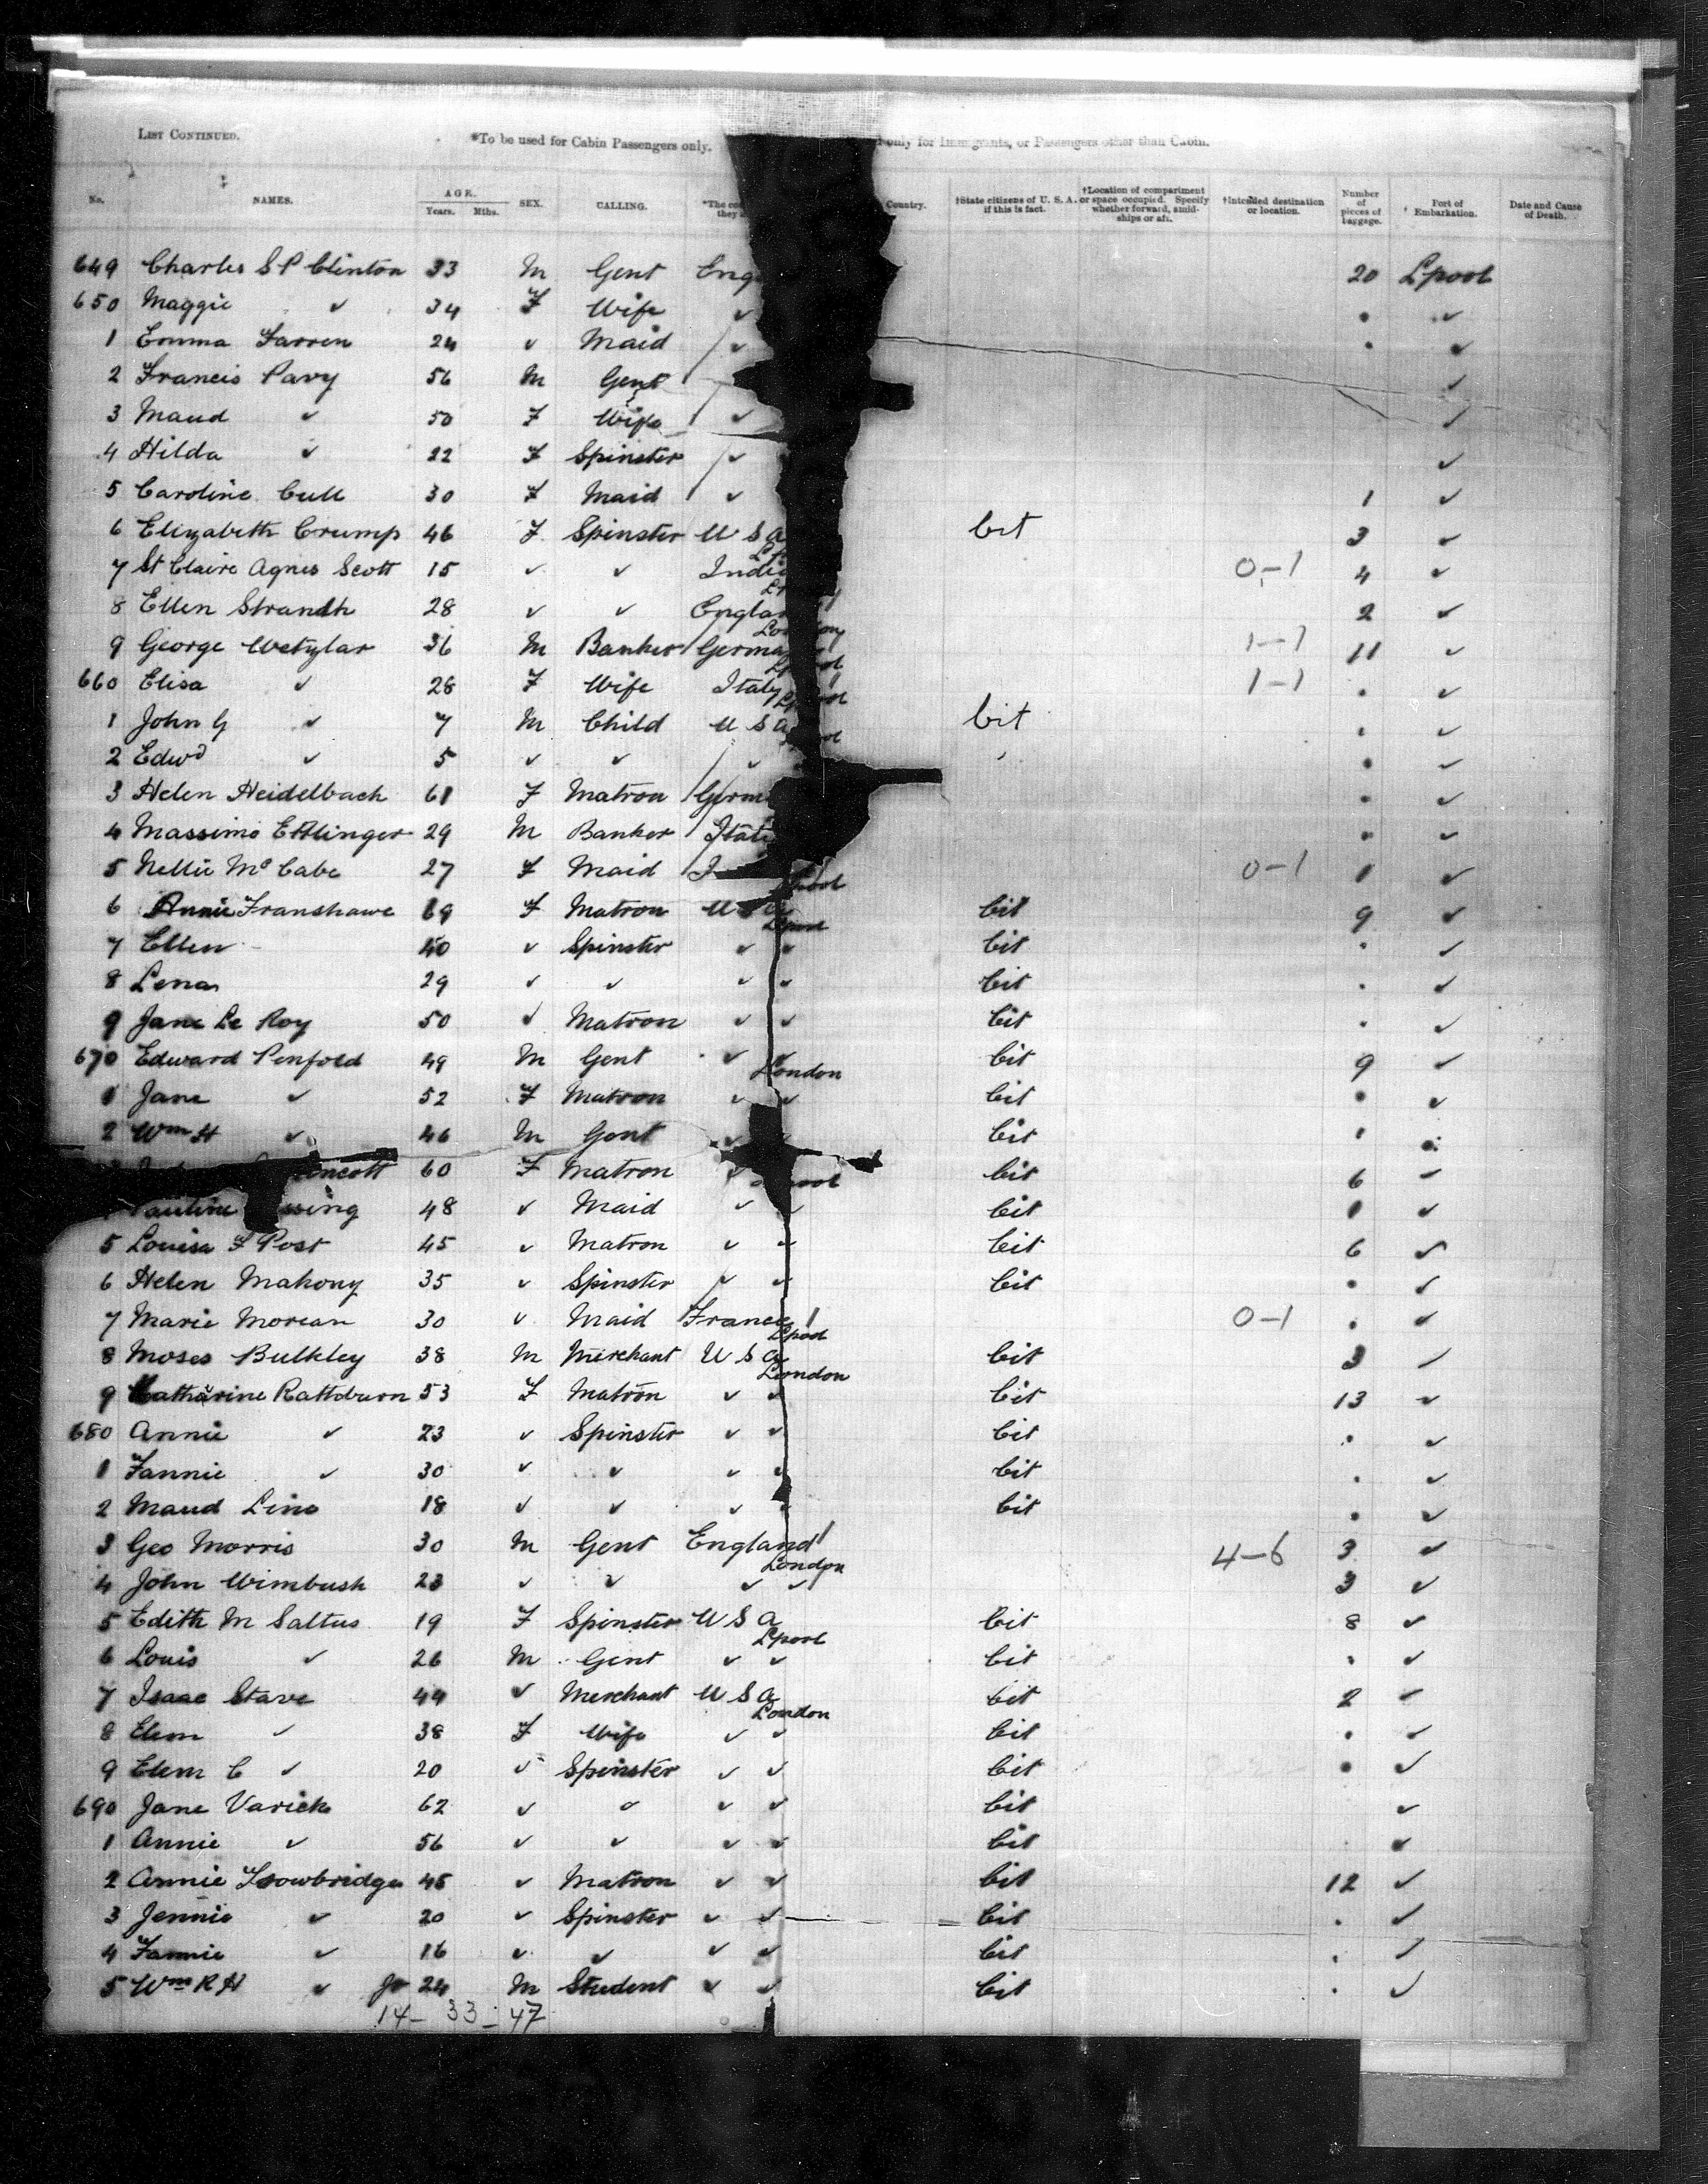 LIST CONTINUED. *To be used for Cabin Passengers only. only for Immigrants, or Passengers other than Cabin.
No. NAMES. AGE. Years. Mths. SEX. CALLING. *The they Country. †State citizens of U. S. A. if this is fact. †Location of compartment or space occupied. Specify whether forward, amidships or aft. †Intended destination or location. Number of pieces of luggage. Port of Embarkation. Date and Cause of Death.
649 Charles St Clinton 33 M Gent Eng 20 Lpool
650 Maggie ✓ 34 F Wife ✓ " ✓
1 Emma Farren 24 ✓ Maid ✓ " ✓
2 Francis Pavy 56 M Gent ✓
3 Maud ✓ 50 F Wife ✓ ✓
4 Hilda ✓ 22 F Spinster ✓ ✓
5 Caroline Cull 30 F Maid ✓ 1 ✓
6 Elizabeth Crump 46 F Spinster U S A Cit 3 ✓
7 St Claire Agnes Scott 15 ✓ ✓ India 0-1 4 ✓
8 Ellen 28 ✓ ✓ England 2 ✓
9 George Wetzlar 36 M Banker Germany 1-1 11 ✓
660 Elisa ✓ 28 F Wife Italy 1-1 " ✓
1 John G ✓ 7 M Child U S A Cit " ✓
2 Edwd ✓ 5 ✓ ✓ ✓ " ✓
3 Helen Heidelbach 61 F Matron Germ " ✓
4 Massimo Ettlinger 29 M Banker " ✓
5 Nellie McCabe 27 F Maid I 0-1 1 ✓
6 Annie Franshawe 69 F Matron U S A Lpool Cit 9 ✓
7 Ellen 40 ✓ Spinster ✓ ✓ Cit " ✓
8 Lena 29 ✓ ✓ ✓ ✓ Cit " ✓
9 Jane Le Roy 50 ✓ Matron ✓ ✓ Cit " ✓
670 Edward Penfold 49 M Gent ✓ ✓ London Cit 9 ✓
1 Jane ✓ 52 F Matron ✓ ✓ Cit " ✓
2 Wm H ✓ 46 M Gent ✓ Cit " "
ncott 60 F Matron ✓ Cit 6 ✓
Pauline 48 ✓ Maid ✓ ✓ Cit 1 ✓
5 Louisa F Post 45 ✓ Matron ✓ ✓ Cit 6 ✓
6 Helen Mahony 35 ✓ Spinster ✓ ✓ Cit " ✓
7 Marie Morean 30 ✓ Maid France Lpool 0-1 " ✓
8 Moses Bulkley 38 M Merchant U S A London Cit 3 ✓
9 Catharine Rathburn 53 F Matron ✓ ✓ Cit 13 ✓
680 Annie ✓ 23 ✓ Spinster ✓ ✓ Cit " ✓
1 Fannie ✓ 30 ✓ ✓ ✓ ✓ Cit " ✓
2 Maud Line 18 ✓ ✓ ✓ ✓ Cit " ✓
3 Geo Morris 30 M Gent England London 4-6 3 ✓
4 John Wimbush 23 ✓ ✓ ✓ ✓ 3 ✓
5 Edith M Saltus 19 F Spinster U S A Lpool Cit 8 ✓
6 Louis ✓ 26 M Gent ✓ ✓ Cit " ✓
7 Isaac Stave 44 ✓ Merchant U S A London Cit 2 ✓
8 Elem ✓ 38 F Wife ✓ ✓ Cit " ✓
9 Elem C ✓ 20 ✓ Spinster ✓ ✓ Cit " ✓
690 Jane Varick 62 ✓ ✓ ✓ ✓ Cit ✓
1 Annie ✓ 56 ✓ ✓ ✓ ✓ Cit ✓
2 Annie Trowbridge 45 ✓ Matron ✓ ✓ Cit 12 ✓
3 Jennie ✓ 20 ✓ Spinster ✓ ✓ Cit " ✓
4 Fannie ✓ 16 ✓ ✓ ✓ ✓ Cit " ✓
5 Wm R H ✓ Jr 24 M Student ✓ ✓ Cit " ✓
14 - 33 - 47